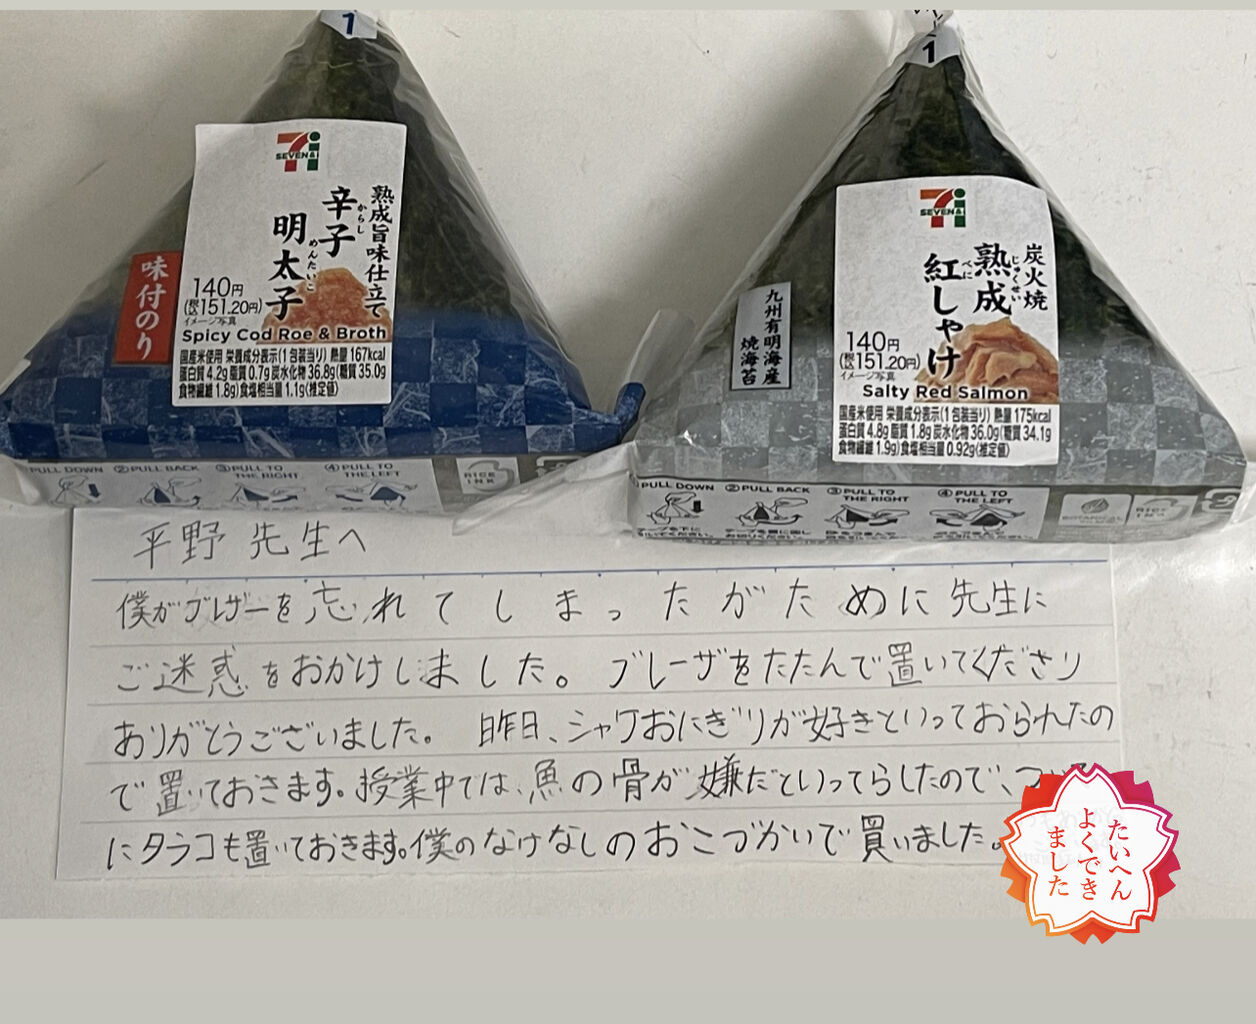 1
SEVEN&i
熟成旨味仕立て
辛子
からし
明太子
めんたいこ
味付のり
140円
(税込151.20円)
イメージ写真
Spicy Cod Roe & Broth
国産米使用 栄養成分表示(1包装当り) 熱量167kcal
蛋白質4.2g 脂質0.7g 炭水化物36.8g(糖質35.0g
食物繊維1.8g) 食塩相当量1.1g(推定値)
PULL DOWN
②PULL BACK
③PULL TO THE RIGHT
④PULL TO THE LEFT
RICE INK
1
SEVEN&i
炭火焼
熟成
じゅくせい
紅しゃけ
べに
九州有明海産
焼海苔
140円
(税込151.20円)
イメージ写真
Salty Red Salmon
国産米使用 栄養成分表示(1包装当り) 熱量175kcal
蛋白質4.8g 脂質1.8g 炭水化物36.0g(糖質34.1g
食物繊維1.9g) 食塩相当量0.92g(推定値)
PULL DOWN
②PULL BACK
③PULL TO THE RIGHT
④PULL TO THE LEFT
平野先生へ
僕がブレザーを忘れてしまったがために先生に
ご迷惑をおかけしました。ブレーザをたたんで置いてくださり
ありがとうございました。昨日、シャケおにぎりが好きといっておられたの
で置いておきます。授業中では、魚の骨が嫌だといってらしたので、つい
にタラコも置いておきます。僕のなけなしのおこづかいで買いました。
たいへん
よくでき
ました